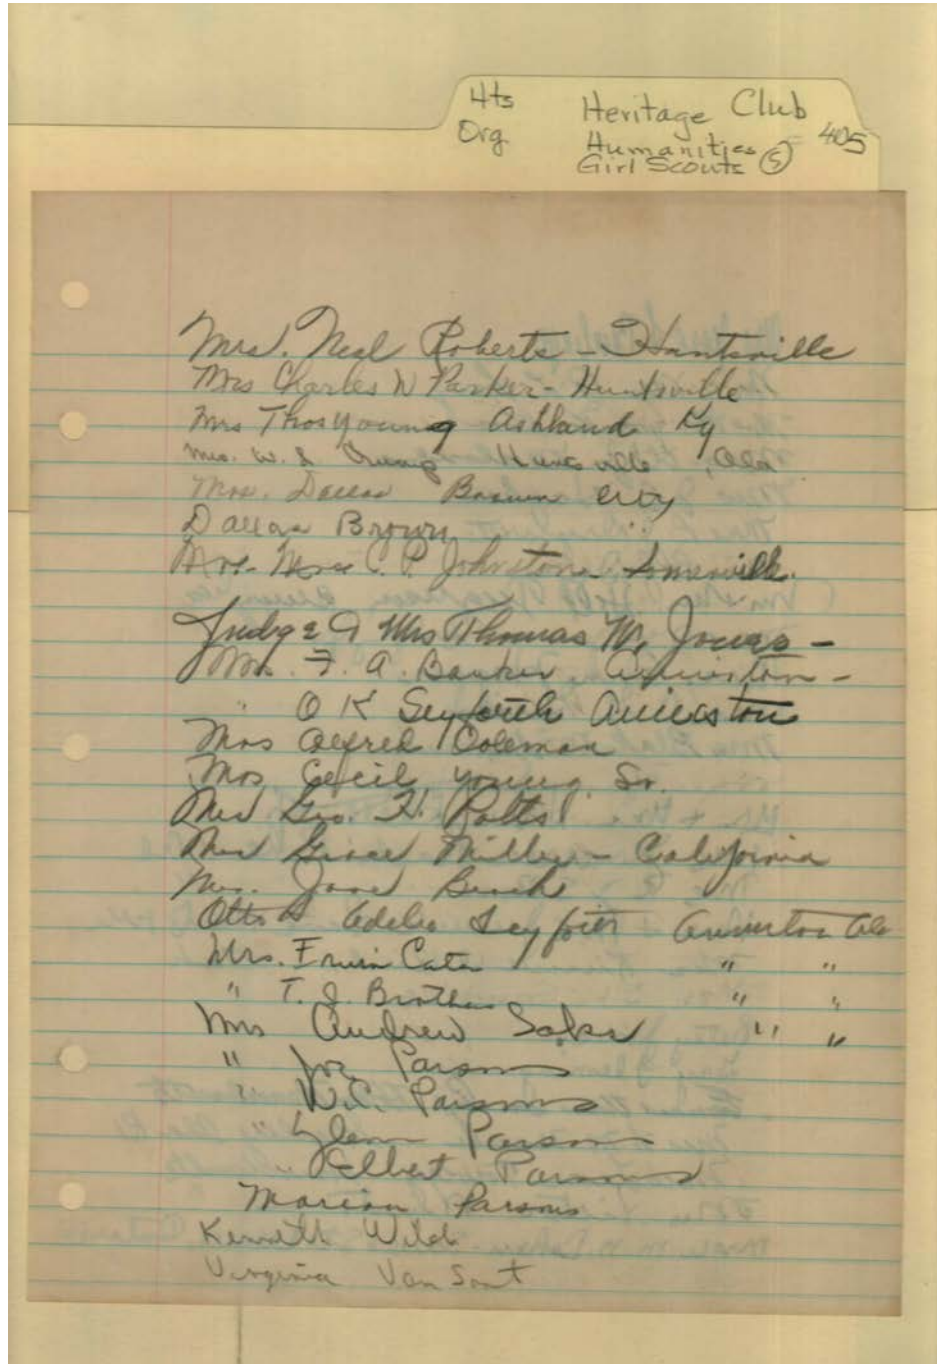 Hts Heritage Club
Org Humanities 405
Girl Scouts (5)
Mrs. Neal Roberts - Huntsville
Mrs Charles W Parker - Huntsville
Mrs Thos Young Ashland Ky
Mrs. W. L Crump Huntsville, Ala
Mrs. Dallas Brown City
Dallas Brown
Mrs. C. P. Johnston Somerville.
Judge & Mrs Thomas W. Jones -
Mrs. F. A. Banker, Anniston -
" O K Seyforth Anniston
Mrs Alfred Coleman
Mrs Cecil Young, Sr.
Mrs Geo. H. Potts
Mrs Grace Miller - California
Mrs. Jane
Otto & Adelia Seyforth Anniston Ala
Mrs. Erwin Cater " "
" T. J. Brothers " "
Mrs Andrew Saks " "
" Joe Parsons
" W. C. Parsons
" Glenn Parsons
" Elbert Parsons
Marion Parsons
Kenneth Wild
Virginia Van Sant